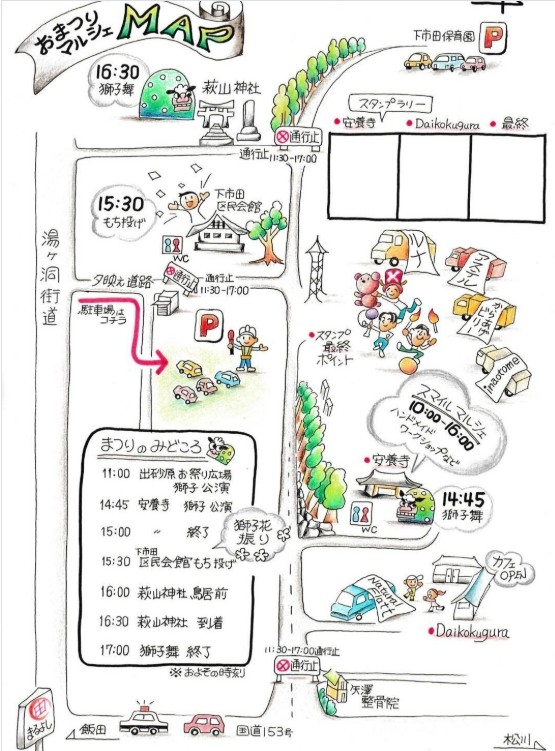 おまつり
マルシェ MAP
下市田保育園 P
16:30
獅子舞
萩山神社
スタンプラリー
安養寺 Daikokugura 最終
通行止
通行止 11:30-17:00
15:30
もち投げ
下市田
区民会館
WC
湯ヶ洞街道
夕映え道路
通行止
通行止
11:30-17:00
駐車場は
コチラ
P
からあげ
どりあん
imaotome
スタンプ
最終
ポイント
スマイルマルシェ
10:00-16:00
ハンドメイド
ワークショップなど
安養寺
14:45
獅子舞
WC
まつりのみどころ
11:00 出砂原お祭り広場
獅子公演
14:45 安養寺 獅子公演
15:00 〃 終了
15:30 下市田
区民会館"もち投げ
16:00 萩山神社鳥居前
16:30 萩山神社 到着
17:00 獅子舞 終了
※おおよその時刻
獅子花
振り
カフェ
OPEN
Natural
Flatt
Daikokugura
11:30-17:00通行止
通行止
矢澤
整骨院
まるよし
飯田
国道153号
松川